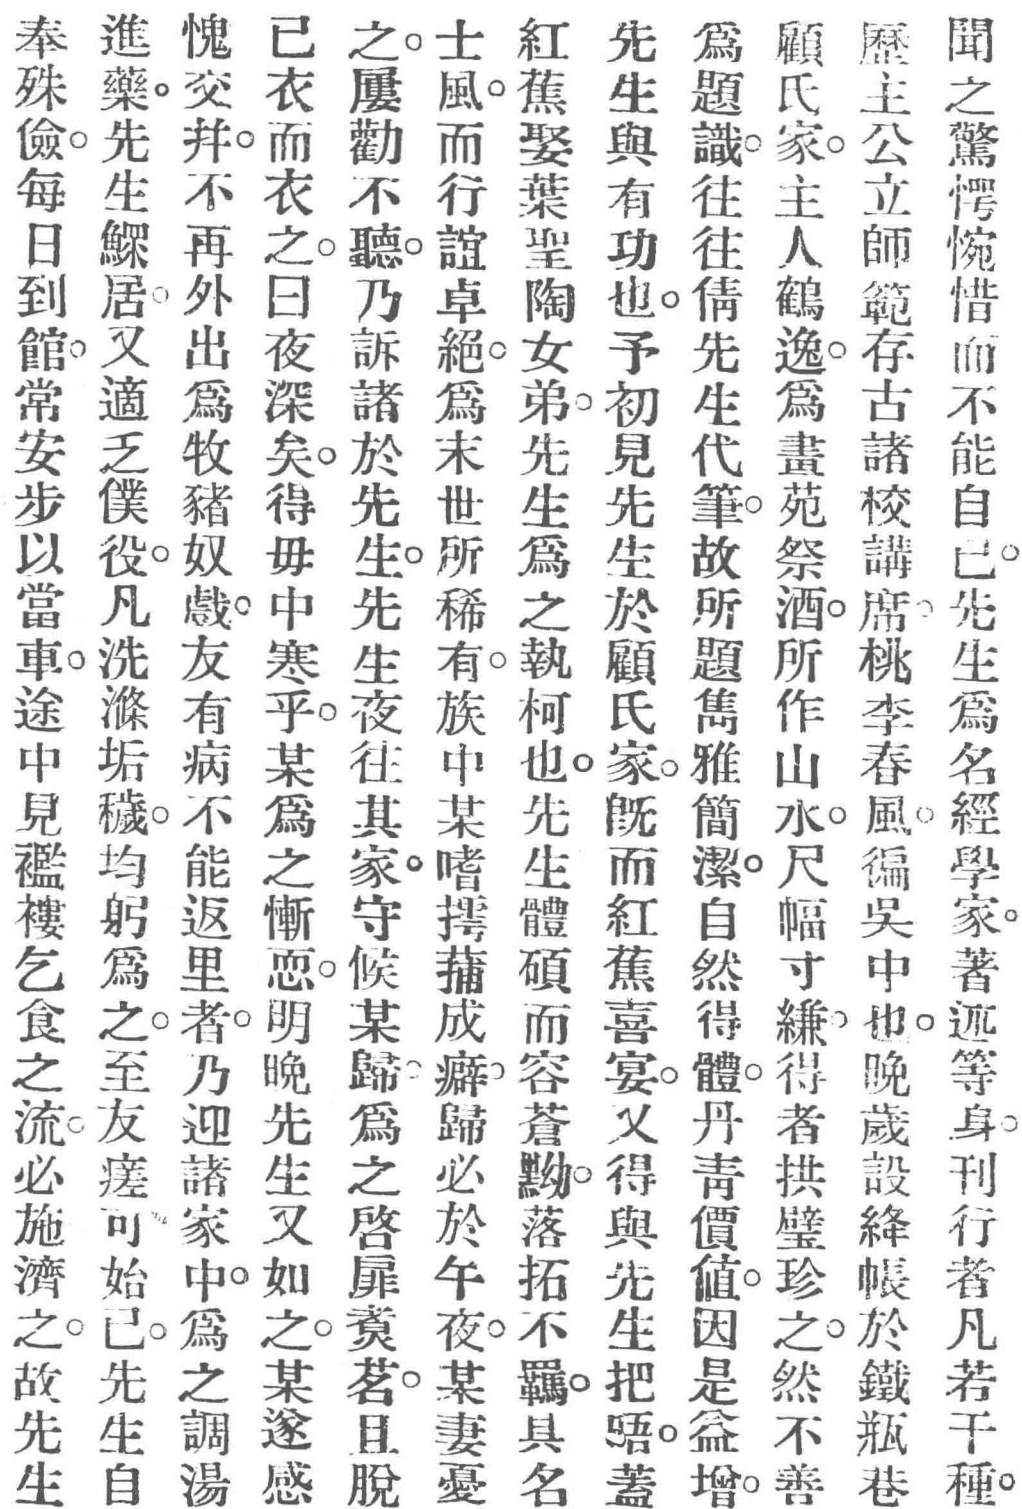 聞之驚愕惋惜而不能自已。先生爲名經學家。著述等身。刊行者凡若干種。
歷主公立師範存古諸校講席。桃李春風。徧吳中也。晚歲設絳帳於鐵瓶巷
顧氏家。主人鶴逸。爲畫苑祭酒。所作山水。尺幅寸縑。得者拱璧珍之。然不善
爲題識。往往倩先生代筆。故所題雋雅簡潔。自然得體。丹靑價值。因是益增。
先生與有功也。予初見先生於顧氏家。旣而紅蕉喜宴。又得與先生把晤。蓋
紅蕉娶葉聖陶女弟。先生爲之執柯也。先生體碩而容蒼黝。落拓不羈。具名
士風。而行誼卓絕。爲末世所稀有。族中某嗜摴蒱成癖。歸必於午夜。某妻憂
之。屢勸不聽。乃訴諸於先生。先生夜往其家。守候某歸。爲之啓扉煑茗。且脫
已衣而衣之。曰夜深矣。得毋中寒乎。某爲之慚恧。明晚先生又如之。某遂感
愧交幷。不再外出爲牧豬奴戲。友有病不能返里者。乃迎諸家中。爲之調湯
進藥。先生鰥居。又適乏僕役。凡洗滌垢穢。均躬爲之。至友瘥可始已。先生自
奉殊儉。每日到館。常安步以當車。途中見襤褸乞食之流。必施濟之。故先生